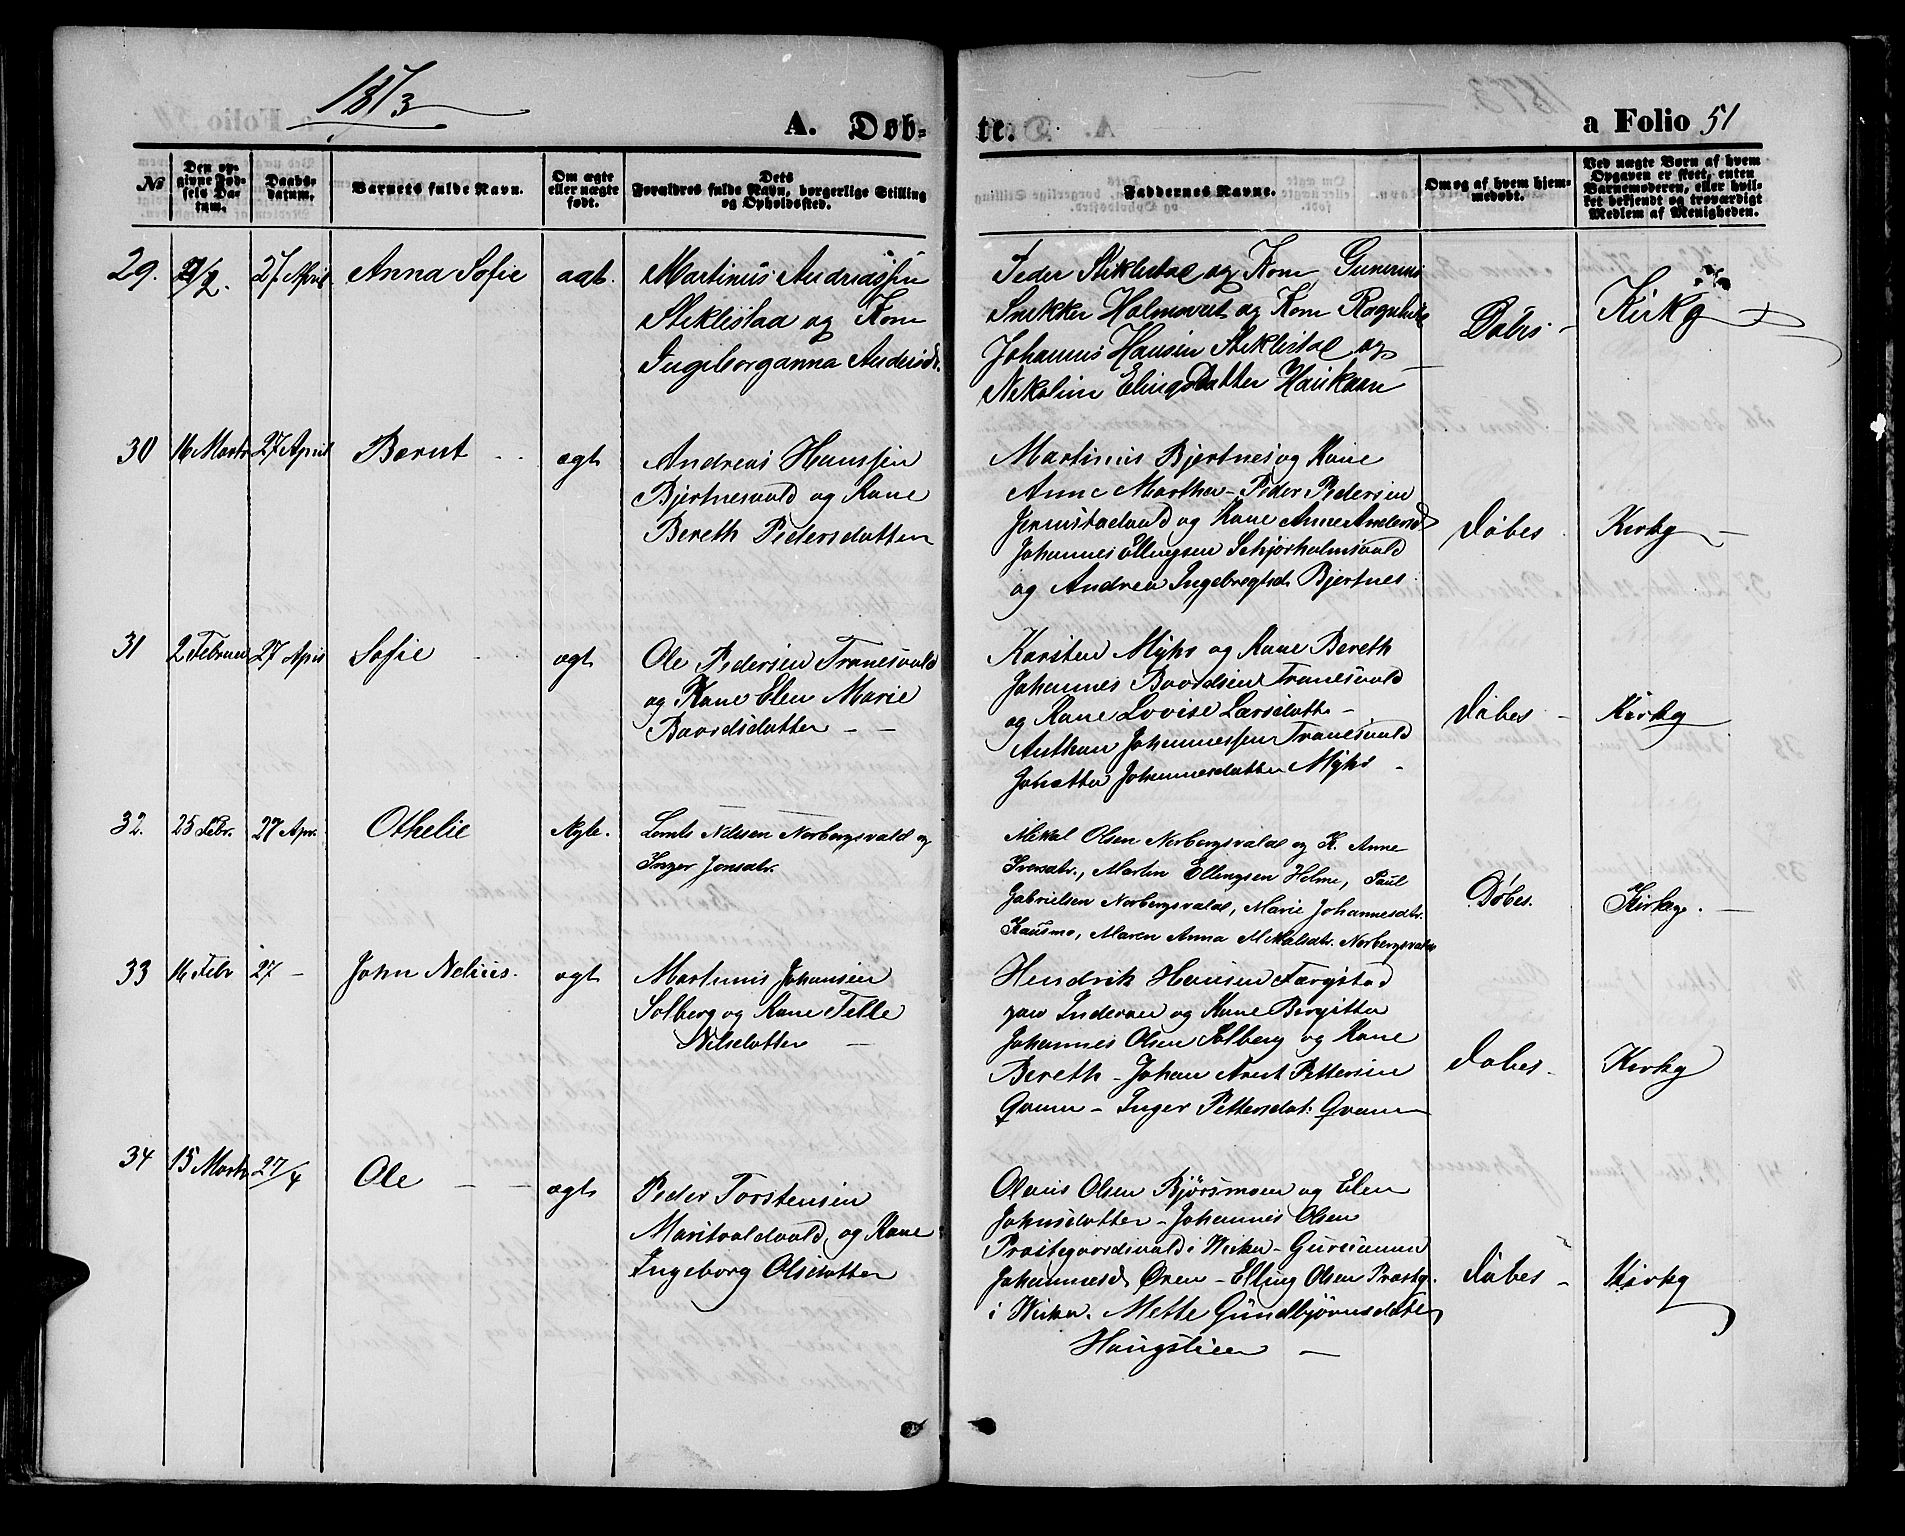 1873
A. Døb-
te.
a Folio 51
No
Den op-
givne Fød-
sels Da-
tum.
Daabs-
datum.
Barnets fulde Navn.
Om ægte
eller uægte
født.
Dets
Forældres fulde Navn, borgerlige Stilling
og Opholdssted.
Faddernes Navne.
Om og af hvem hjem-
medøbt.
Ved uægte Børn af hvem
Opgaven er skeet, enten
Barnemoderen, eller hvil-
ket bekjendt og troværdigt
Medlem af Menigheden.
29. 2/2. 27 April Anna Sofie agt.
Martinus Andreassen
Stiklestad og Kone
Ingeborganna Andersd.
Peder Stiklestad og Kone
Snekker Holmsvet og Kone
Johannes Hansen Stiklestad og
Nekoline Elingsdatter Haukaan
Døbes - Kirkg
30 16 Marts 27 April Bernt ægt
Andreas Hanssen
Bjertnesvald og Kone
Bereth Pedersdatter
Martinus Bjertnes og Kone
Anne Martha - Peder Pedersen
og Kone Anne Andersd
Johannes Ellingsen Schjørholmsvald
og Andrea Ingebregtsd. Bjertnes.
Døbes. Kirkg
31 2 Februar 27 April Sofie ægt
Ole Pedersen Tranesvald
og Kone Elen Marie
Baardsdatter
Karsten Myhr og Kone Bereth
Johannes Baardsen Tranesvald
og Kone Lovise Larsdatter -
Anthon Johannessen Tranesvald
Johannesdatter Myhr -
Døbes - Kirkg
32. 25 Febr. 27 Apr. Othelie Ægte.
Nilsen Norbergsvald og
Inger Jonsdtr.
Mikal Olsen Norbergsvald og K. Anne
Iversdtr., Martin Ellingsen Helme, Paul
Gabrielsen Norbergsvald, Marie Johannesdtr.
Kausmo, Maren Anna Mikalsdtr. Norbergsvald
Døbes. Kirkeg. -
33 16 Febr 27 - John Nelius. ægt
Martinus Johansen
Solberg og Kone Telle
Nilsdatter -
Hendrik Hansen Færgstad
paa Inderøen og Kone Bergitta
Johannes Olsen Solberg og Kone
Bereth - Johan Arnt Pettersen
Qvam - Inger Pettersdat: Qvam
Døbes - Kirkg
34 15 Marts 27/4 Ole ægt
Peder Torstensen
Maritvoldvald, og Kone
Ingeborg Olsdatter
Olaus Olsen Bjørsmoen og Elen
Johnsdatter - Johannes Olsen
Præstegaardsvald i Wukn -
Johannesd Øren - Elling Olsen Præstg.
i Wukn. Mette Gundbjørnsdatter
Haugslien -
Døbes - Kirkg